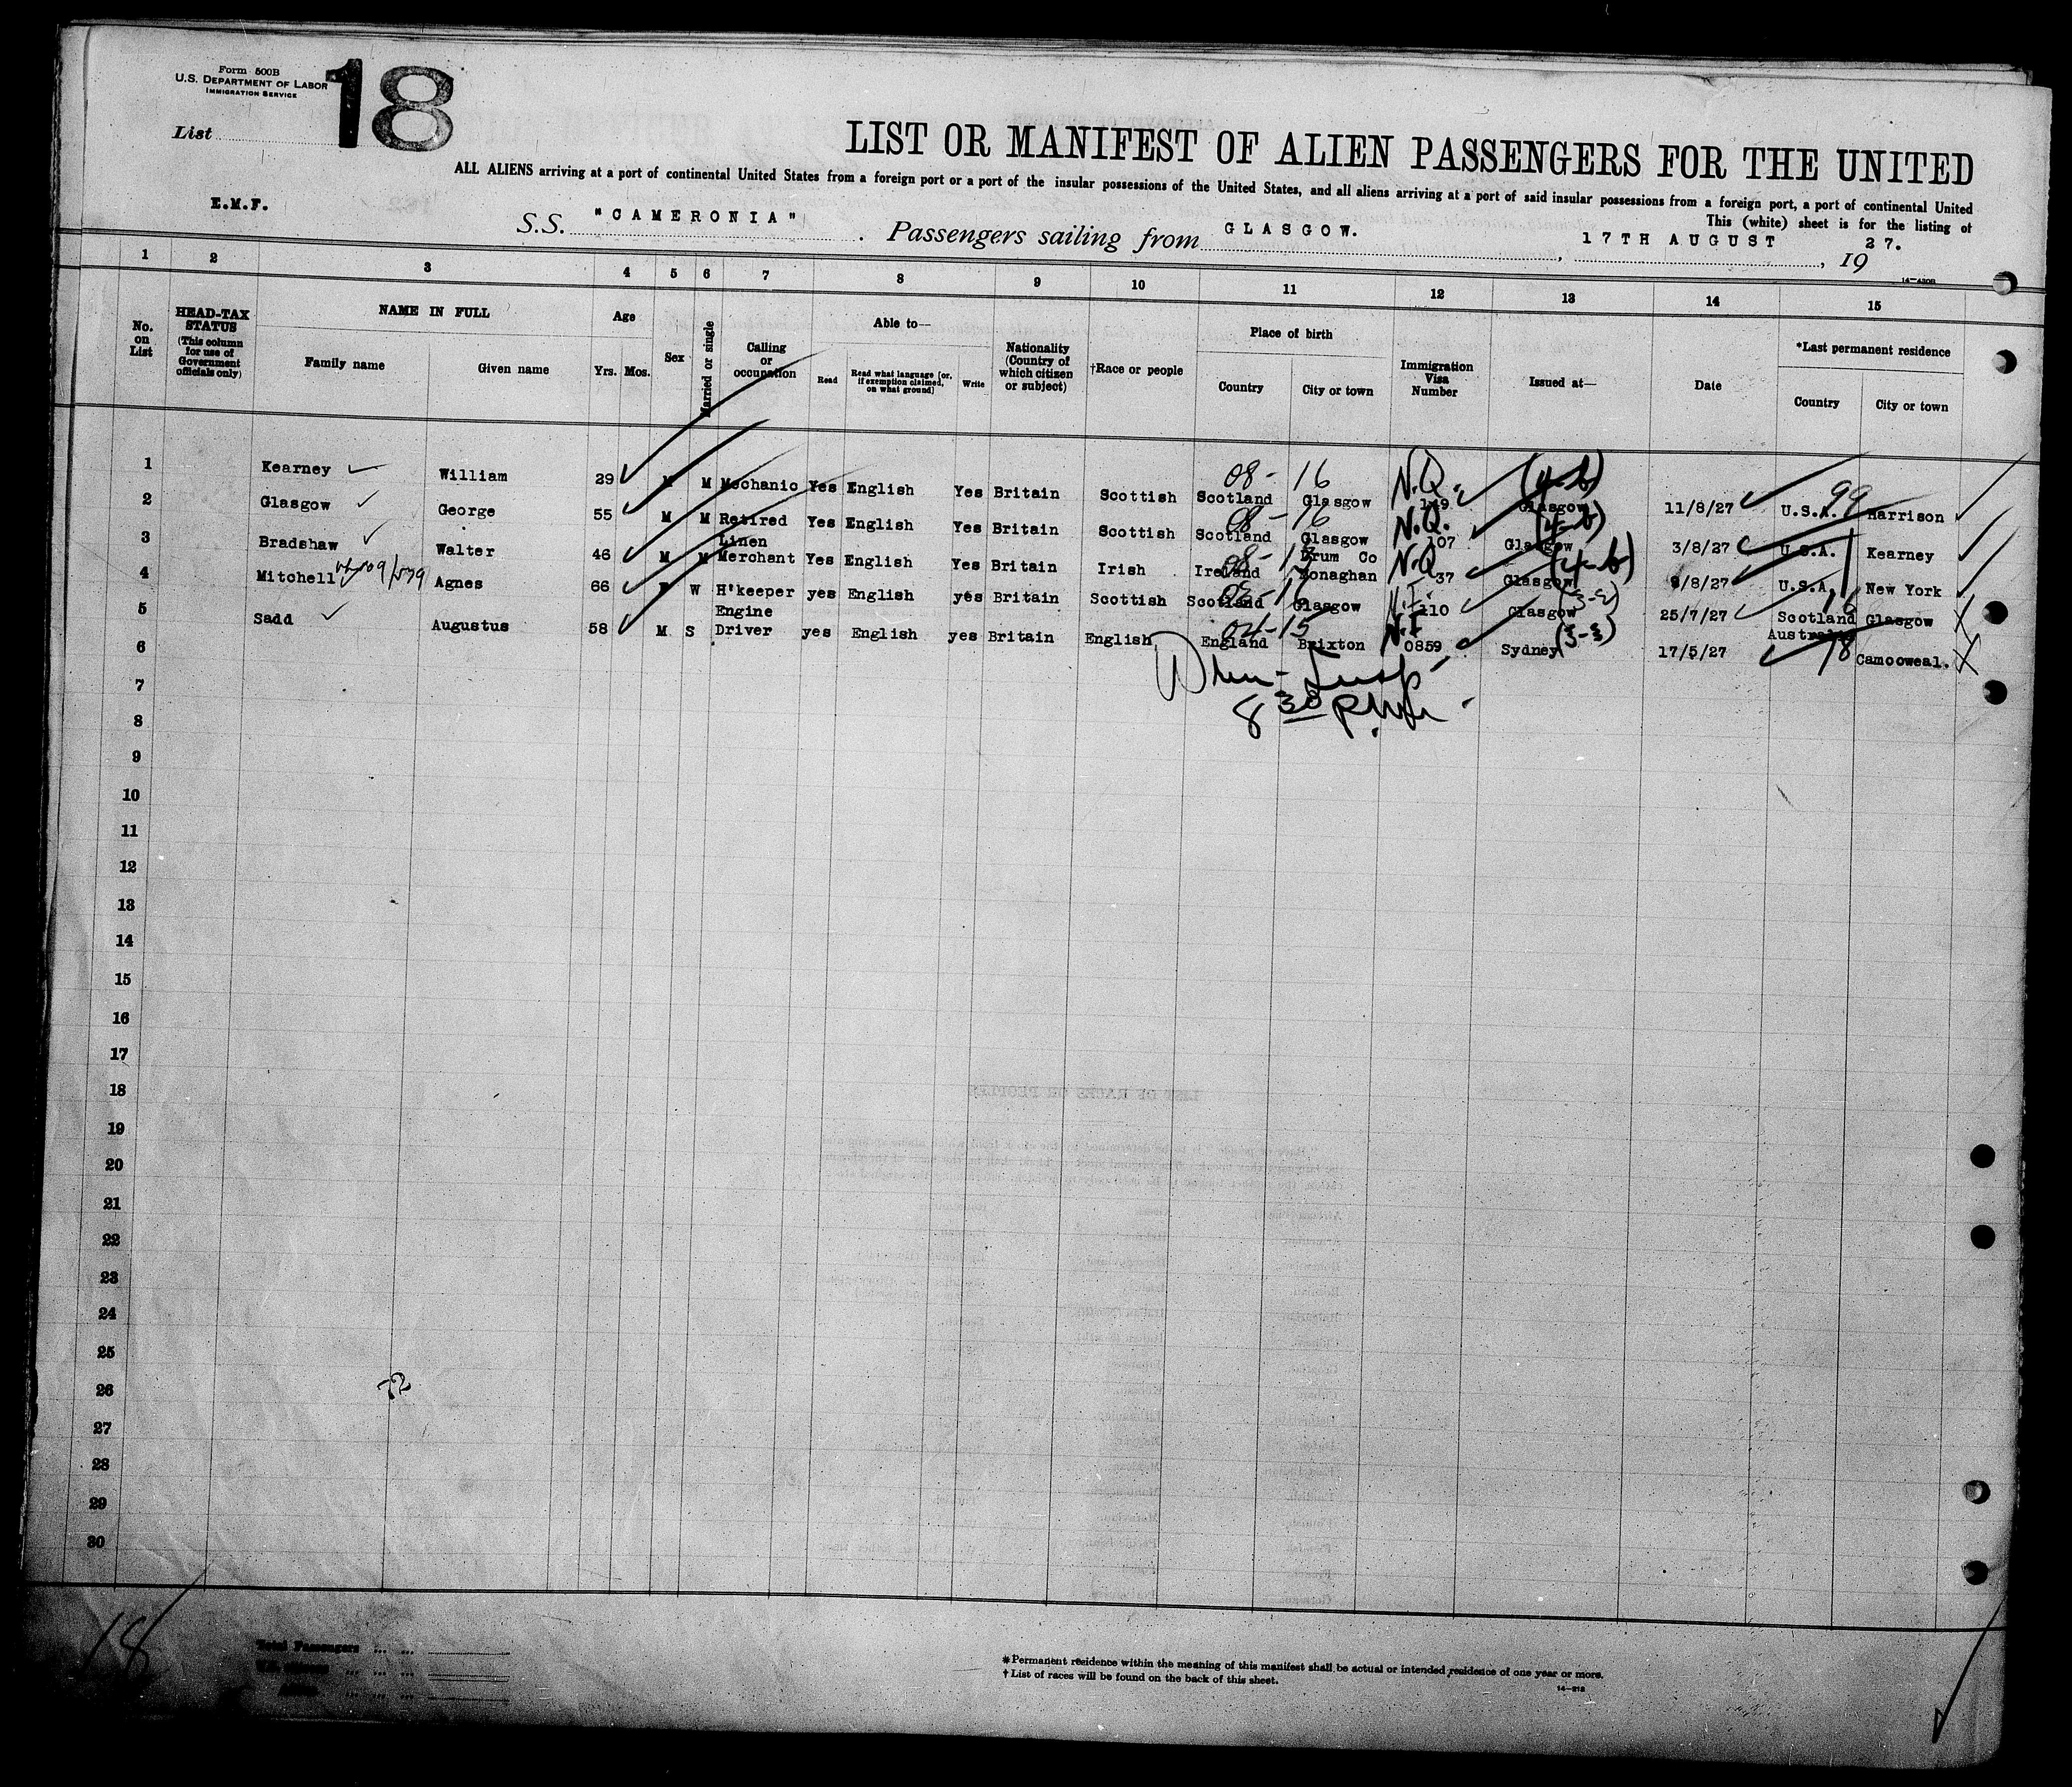 Form 500B
U.S. DEPARTMENT OF LABOR
IMMIGRATION SERVICE
18
List
LIST OR MANIFEST OF ALIEN PASSENGERS FOR THE UNITED
ALL ALIENS arriving at a port of continental United States from a foreign port or a port of the insular possessions of the United States, and all aliens arriving at a port of said insular possessions from a foreign port, a port of continental United
This (white) sheet is for the listing of
E.M.F.
S.S. "CAMERONIA" . Passengers sailing from GLASGOW. , 17TH AUGUST , 19 27.
14-430B
1 2 3 4 5 6 7 8 9 10 11 12 13 14 15
No. on List
HEAD-TAX STATUS (This column for use of Government officials only)
NAME IN FULL
Family name Given name
Age
Yrs. Mos.
Sex
Married or single
Calling or occupation
Able to—
Read
Read what language [or, if exemption claimed, on what ground]
Write
Nationality (Country of which citizen or subject)
†Race or people
Place of birth
Country City or town
Immigration Visa Number
Issued at—
Date
*Last permanent residence
Country City or town
08-16 N.Q. (4-b) 99
1 Kearney William 29 M M Mechanic Yes English Yes Britain Scottish Scotland Glasgow 149 Glasgow 11/8/27 U.S.A. Harrison
08-16 N.Q. (4-b)
2 Glasgow George 55 M M Retired Yes English Yes Britain Scottish Scotland Glasgow 107 Glasgow 3/8/27 U.S.A. Kearney
Linen Drum Co N.Q (4-b)
3 Bradshaw Walter 46 M M Merchant Yes English Yes Britain Irish Ireland Monaghan 37 Glasgow 9/8/27 U.S.A. New York
03-16 N.I. 16
4 Mitchell Agnes 66 F W H'keeper yes English yes Britain Scottish Scotland Glasgow 110 Glasgow 25/7/27 Scotland Glasgow
Engine 04-15 N.I (3-3) Australia
5 Sadd Augustus 58 M S Driver yes English yes Britain English England Brixton 0859 Sydney 17/5/27 18 Camooweal.
6
7
8 30
8
9
10
11
12
13
14
15
16
17
18
19
20
21
22
23
24
25
26
27
28
29
30
18
Total Passengers ... ...
*Permanent residence within the meaning of this manifest shall be actual or intended residence of one year or more.
†List of races will be found on the back of this sheet.
14-218
LIST OF RACES OR PEOPLES